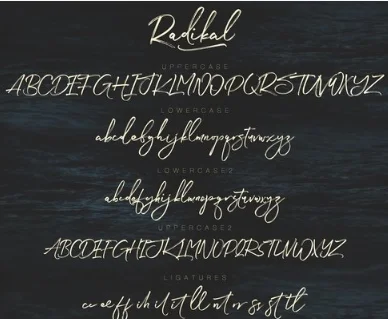 Radikal
UPPERCASE
ABCDEFGHIJKLMNOPQRSTUVWXYZ
LOWERCASE
abcdefghijklmnopqrstuvwxyz
LOWERCASE2
abcdefghijklmnopqrstuvwxyz
UPPERCASE2
ABCDEFGHIJKLMNOPQRSTUVWXYZ
LIGATURES
cc ee ff ih il it ll nt or ss st tt